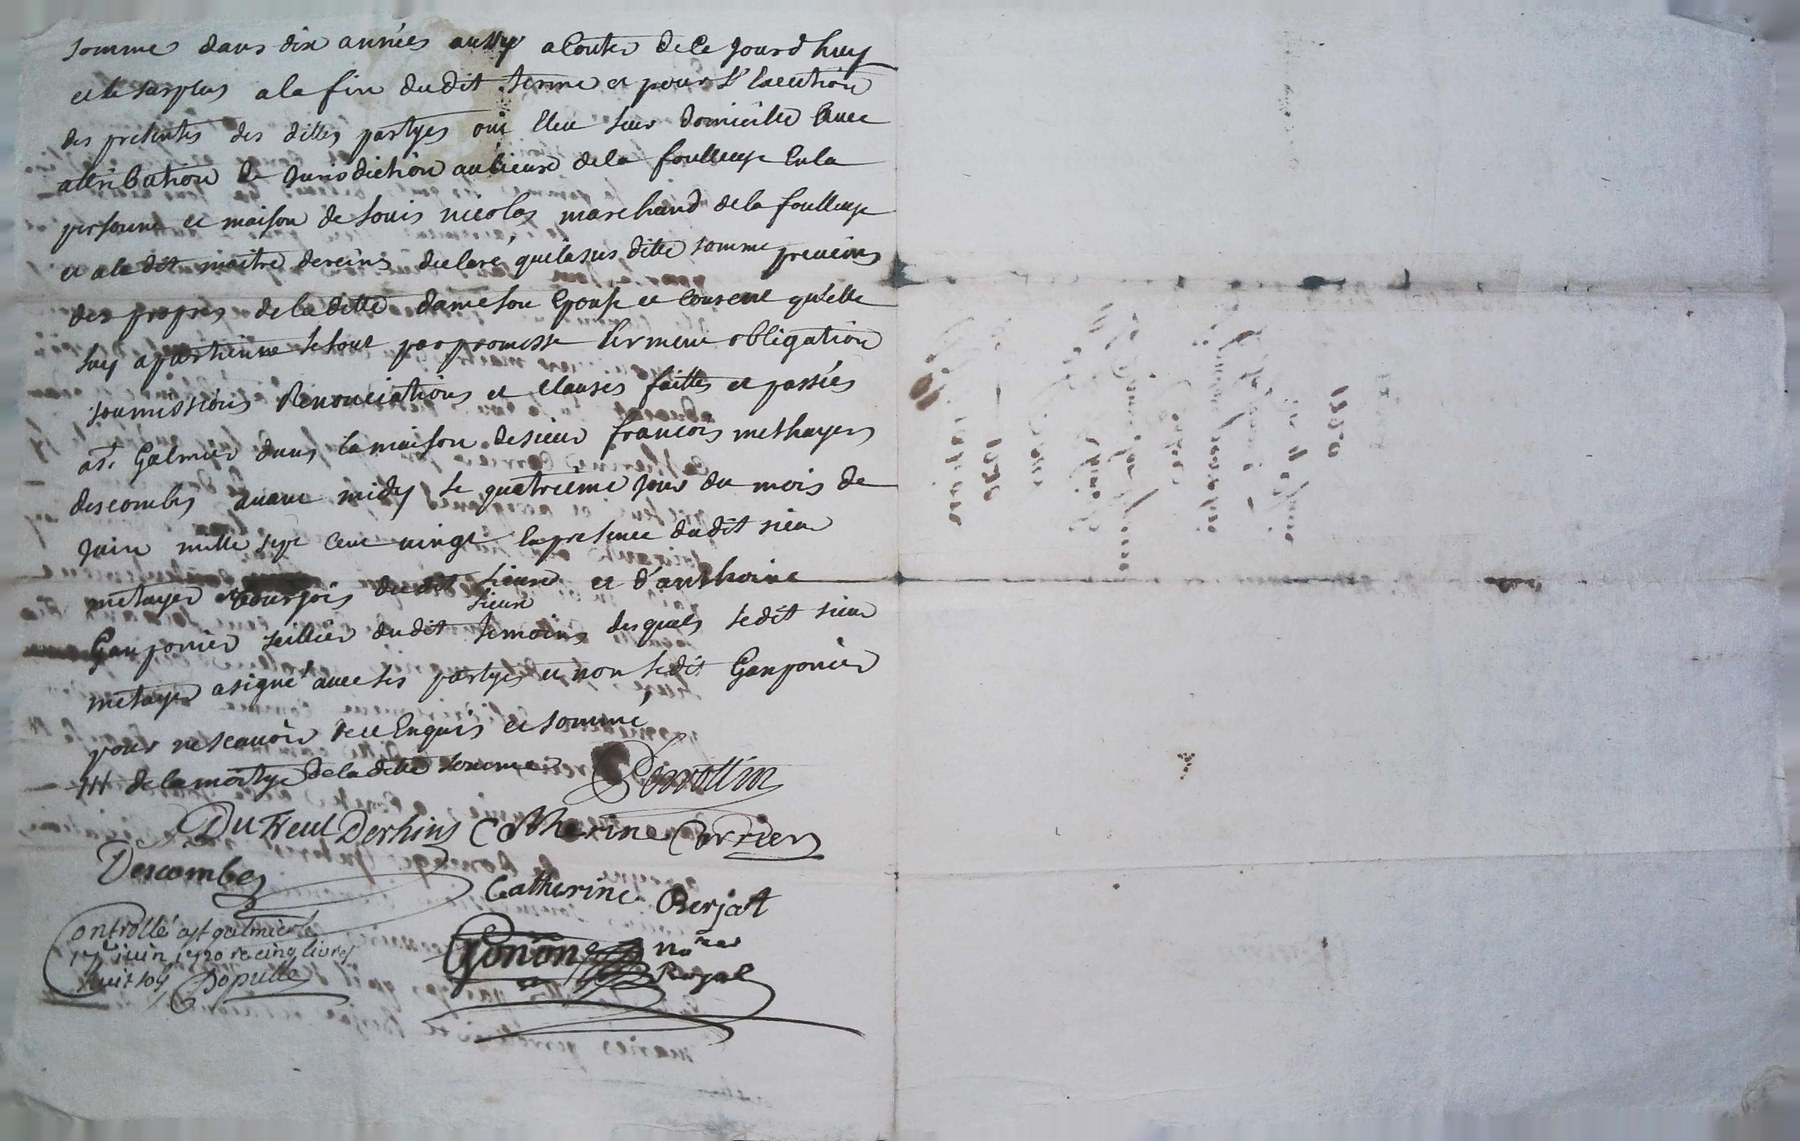 somme dans dix années aussy a Conter de Ce Jourd huy
et le surplus a la fin du dit terme et pour L'Execution
des presentes des dittes partyes ont Eleu leur domicille Avec
attribution de Jurisdiction au lieux de la fouilleuse En la
personne et maison de Louis nicolas marchand de la fouilleuse
et a le dit maitre dereins declaré que la sus ditte somme provient
des propres de la ditte dame son Epouse et Consent qu'elle
luy apartienne le tout par promesse serment obligation
soumissions Renonciations et Clauses faittes et passées
a St. Galmier dans la maison de sieur francois methayer
descombes avant midy le quatrieme Jour du mois de
Juin mille sept Cent vingt En presence du dit sieur
metayer bourjois du dit lieux et d'anthoine
Ganponier seillier du dit lieux temoins desquels le dit sieur
metayer a signé avec les partyes et non le dit Ganponier
pour ne scavoir de ce Enquis et sommé
de la moitye de la ditte somme Perrottin
Du Treul Derhins Catherine Carrier
Descombes
Catherine Berjat
Gonon no.re Royal
Controllé a St galmier le
17e juin 1720 re cinq livres
huit sols Dopulle